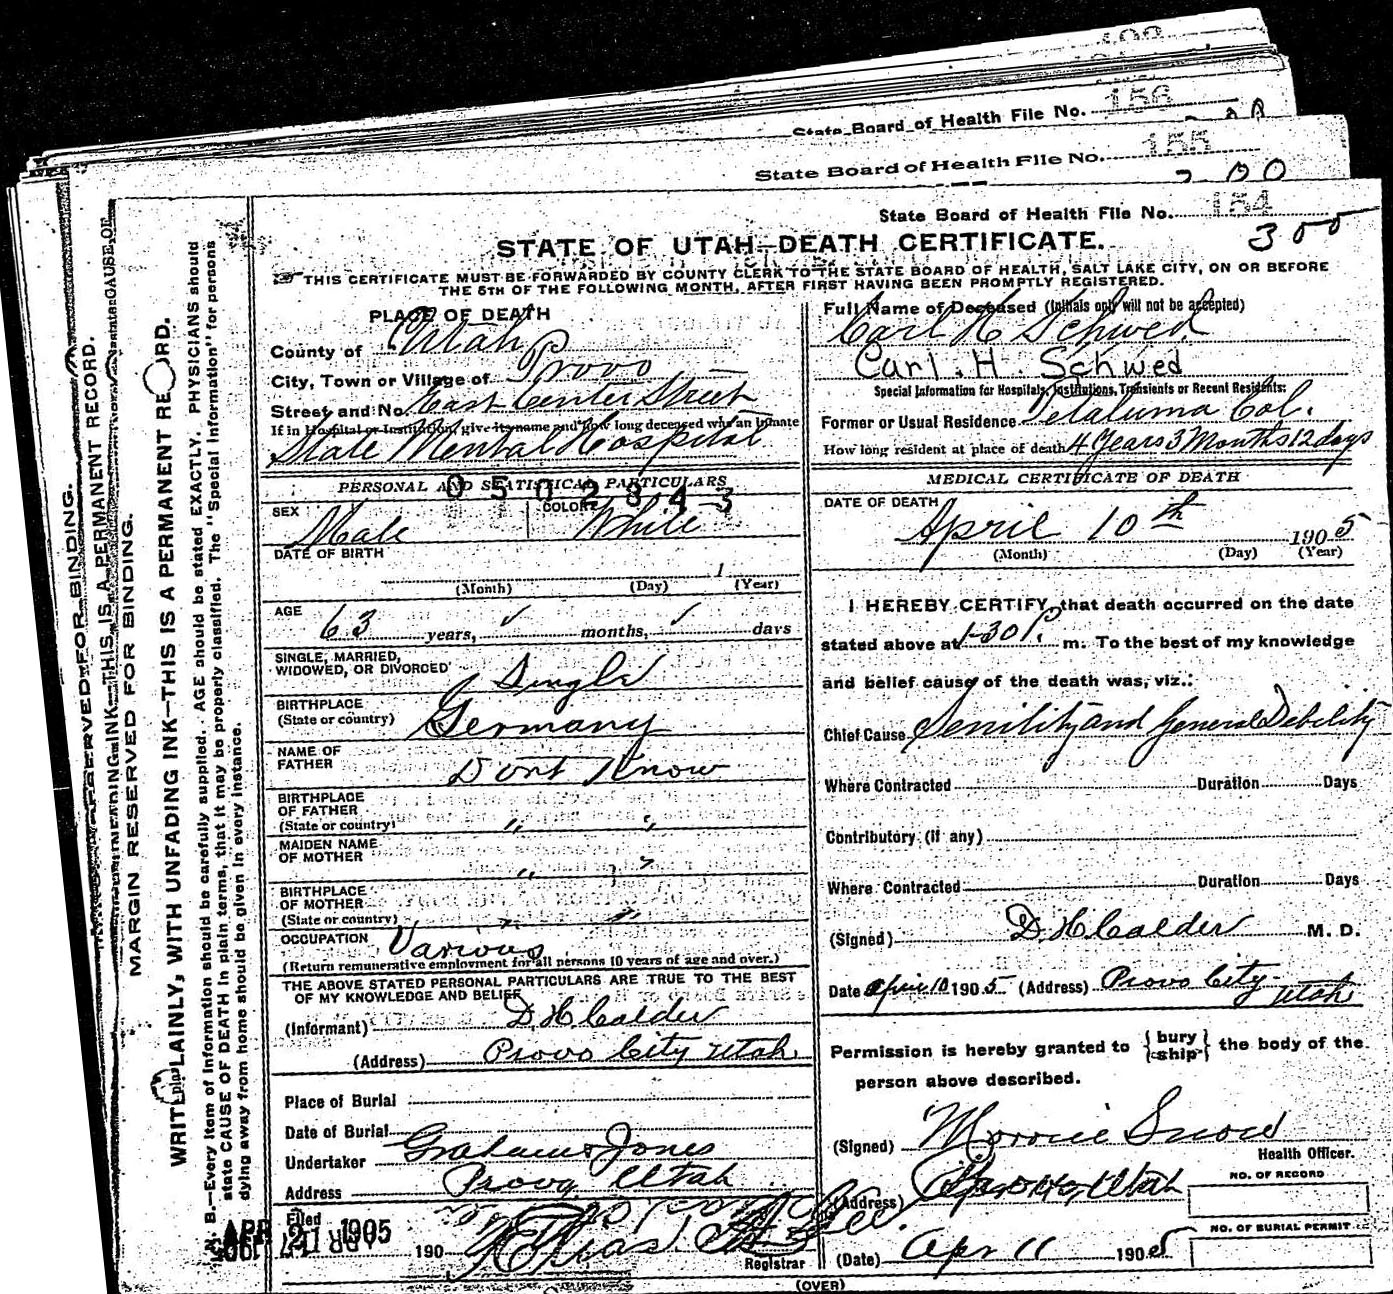 State Board of Health File No. 156
State Board of Health File No. 155
State Board of Health File No. 154
300
STATE OF UTAH—DEATH CERTIFICATE.
THIS CERTIFICATE MUST BE FORWARDED BY COUNTY CLERK TO THE STATE BOARD OF HEALTH, SALT LAKE CITY, ON OR BEFORE
THE 5TH OF THE FOLLOWING MONTH, AFTER FIRST HAVING BEEN PROMPTLY REGISTERED.
MARGIN RESERVED FOR BINDING.
WRITE PLAINLY, WITH UNFADING INK—THIS IS A PERMANENT RECORD.
N. B.—Every item of information should be carefully supplied. AGE should be stated EXACTLY. PHYSICIANS should
state CAUSE OF DEATH in plain terms, that it may be properly classified. The "Special Information" for persons
dying away from home should be given in every instance.
PLACE OF DEATH
County of Utah
City, Town or Village of Provo
Street and No. East Center Street
If in Hospital or Institution, give its name and how long deceased was an Inmate
State Mental Hospital
PERSONAL AND STATISTICAL PARTICULARS
0502843
SEX Male COLOR White
DATE OF BIRTH
(Month) (Day) 1 (Year)
AGE 63 years, months, days
SINGLE, MARRIED,
WIDOWED, OR DIVORCED Single
BIRTHPLACE
(State or country) Germany
NAME OF
FATHER Dont Know
BIRTHPLACE
OF FATHER
(State or country) " "
MAIDEN NAME
OF MOTHER " "
BIRTHPLACE
OF MOTHER
(State or country) " "
OCCUPATION Various
(Return remunerative employment for all persons 10 years of age and over.)
THE ABOVE STATED PERSONAL PARTICULARS ARE TRUE TO THE BEST
OF MY KNOWLEDGE AND BELIEF
(Informant) D H Calder
(Address) Provo City Utah.
Place of Burial
Date of Burial
Undertaker Graham Jones
Address Provo, Utah
Filed APR 1905
190
Registrar
(OVER)
Full Name of Deceased (Initials only will not be accepted)
Carl H Schwed
Carl. H. Schwed
Special Information for Hospitals, Institutions, Transients or Recent Residents:
Former or Usual Residence Petaluma Cal.
How long resident at place of death 4 Years 3 Months 12 days
MEDICAL CERTIFICATE OF DEATH
DATE OF DEATH
April 10th 1905
(Month) (Day) (Year)
I HEREBY CERTIFY, that death occurred on the date
stated above at 1-30 P. m. To the best of my knowledge
and belief cause of the death was, viz.:
Chief Cause Senility and General Debility
Where Contracted Duration Days
Contributory (if any)
Where Contracted Duration Days
(Signed) D. H. Calder M. D.
Date April 10 1905 (Address) Provo City Utah
Permission is hereby granted to {bury ship} the body of the
person above described.
(Signed) Snow
Health Officer.
(Address) Provo, Utah
NO. OF RECORD
NO. OF BURIAL PERMIT
(Date) Apr 11 1905